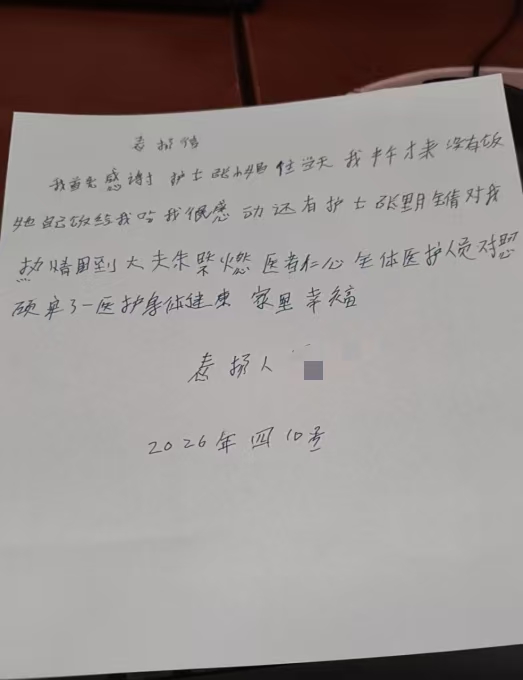 表扬信
我首先感谢 护士张小娟 住当天 我中午才来 没有饭
她自己饭给我吃 我很感动 还有护士张明倩对我
热情周到 大夫朱 燃 医者仁心 全体医护人员对
医护身体健康 家里幸福
表扬人
2026年四10号